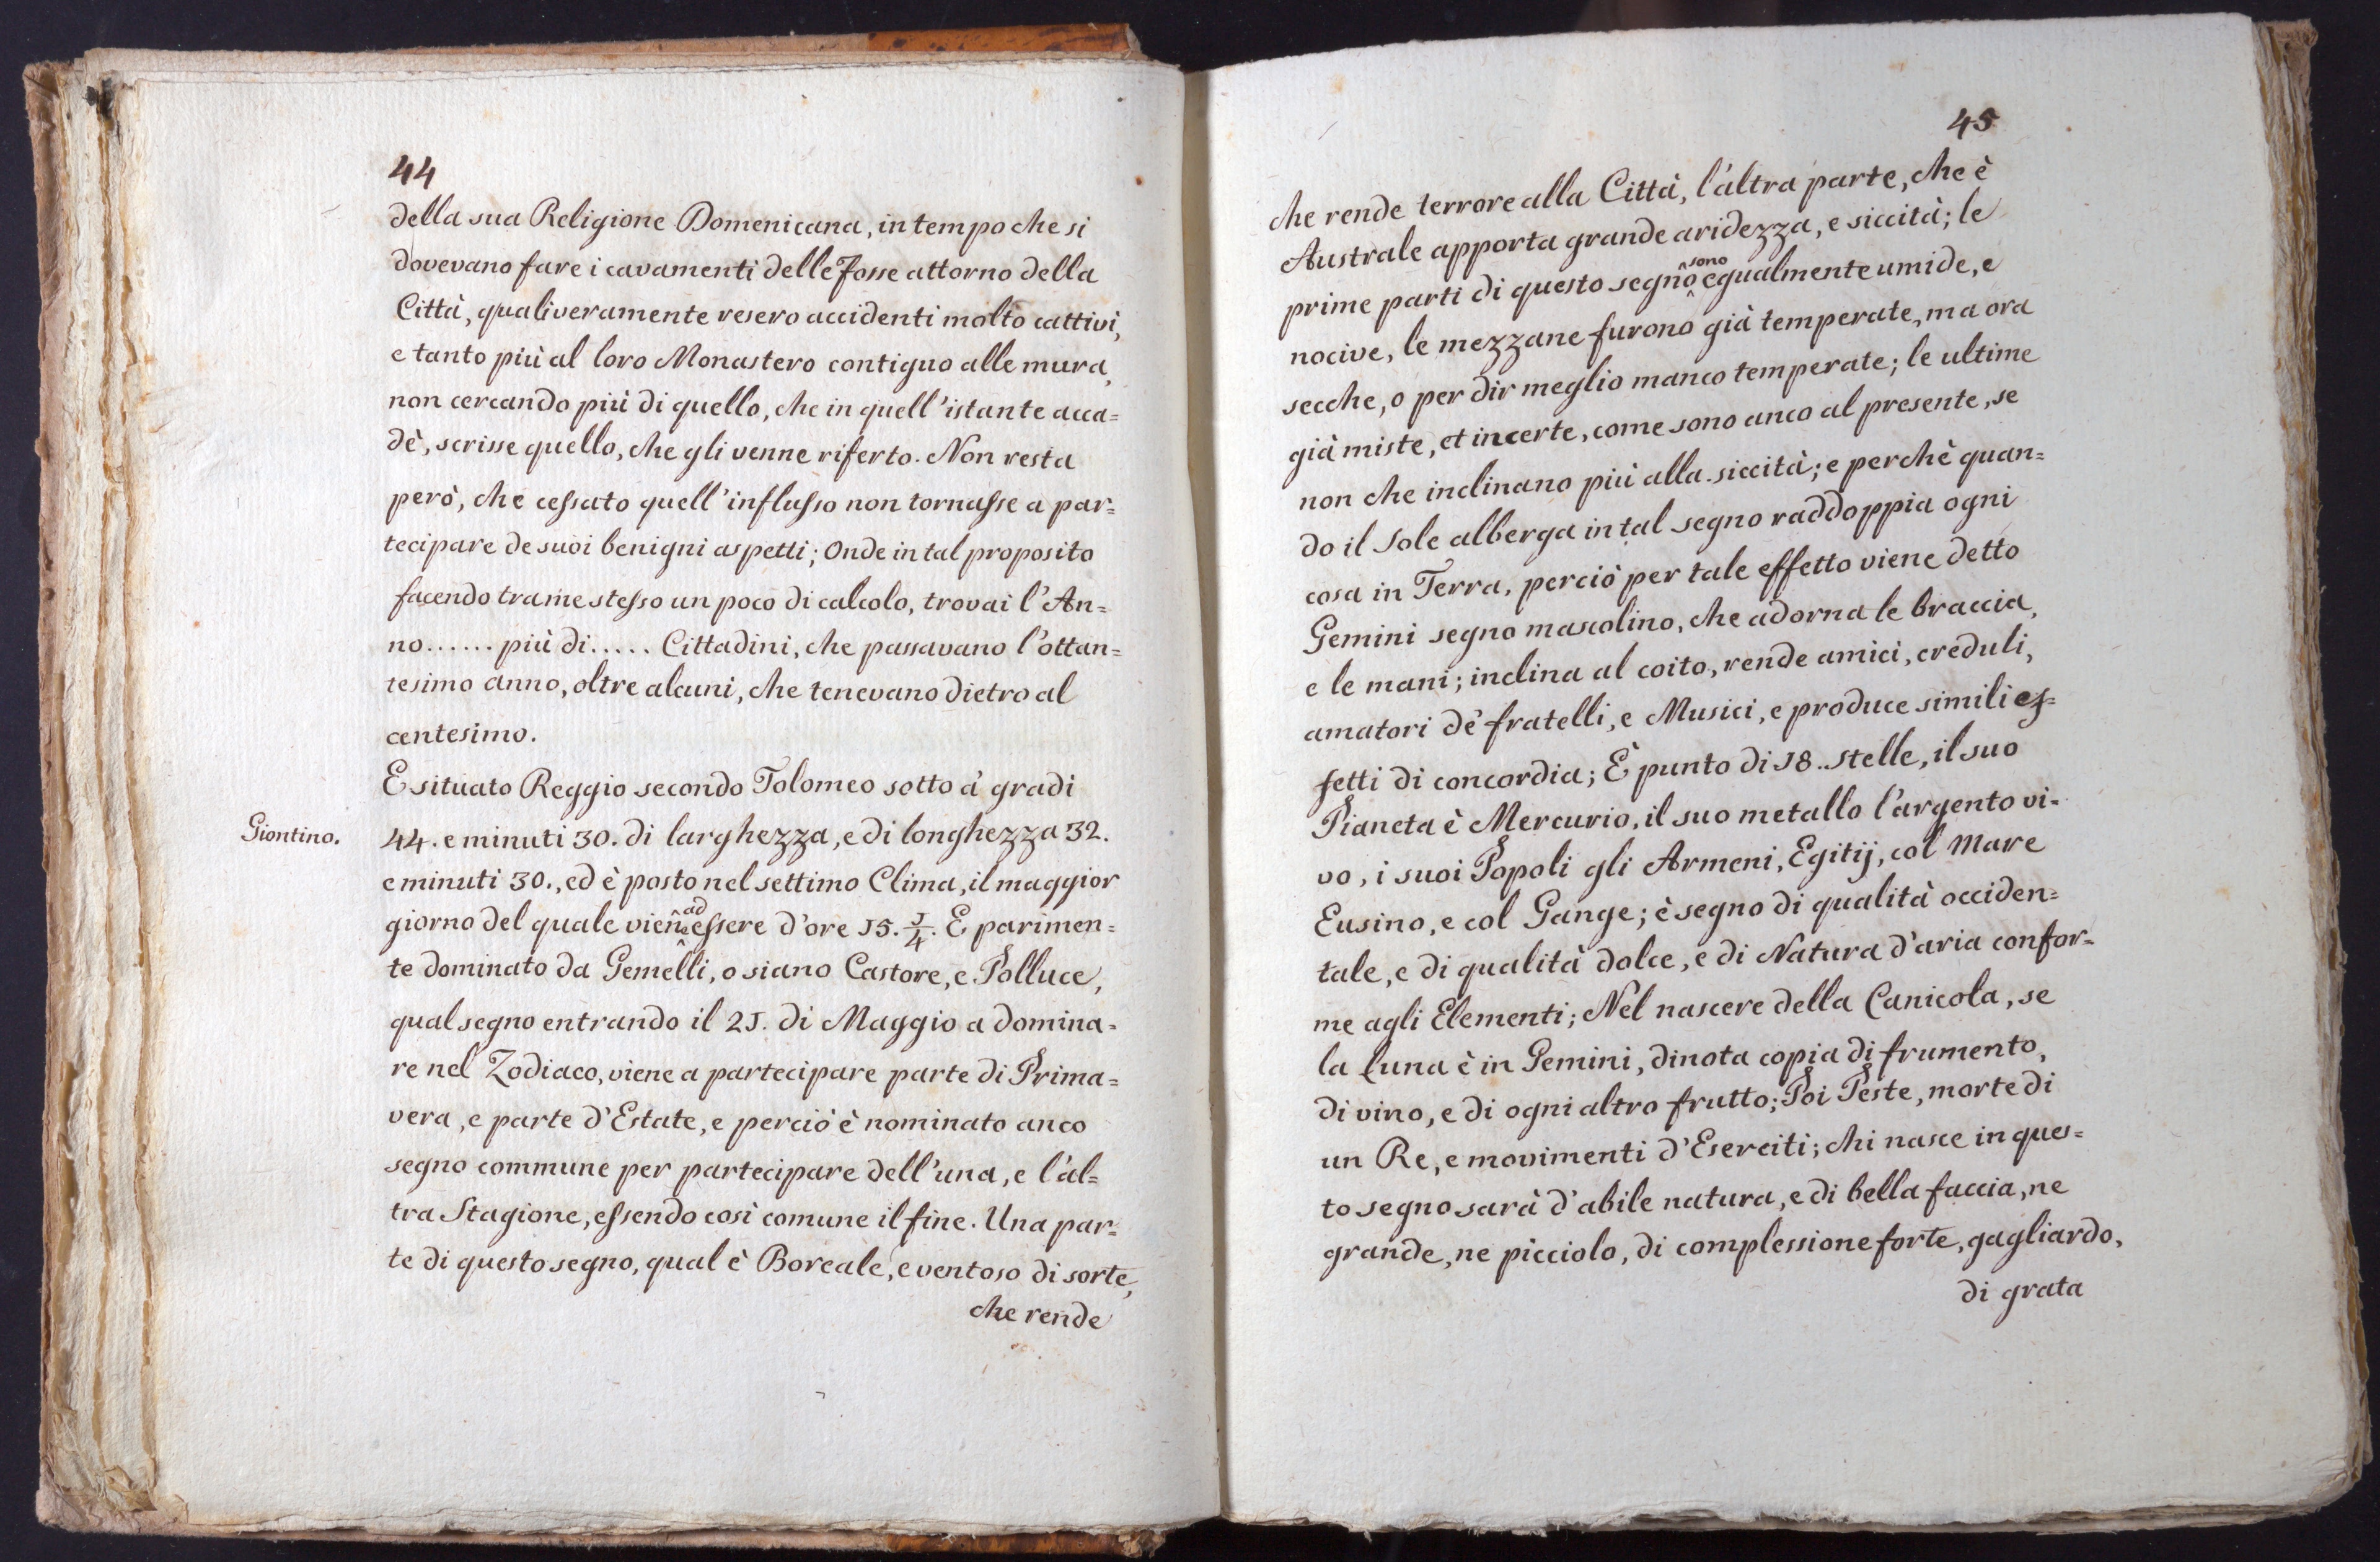 44
della sua Religione Domenicana, in tempo che si
dovevano fare i cavamenti delle Fosse attorno della
Città, quali veramente resero accidenti molto cattivi,
e tanto più al loro Monastero contiguo alle mura,
non cercando più di quello, che in quell'istante acca=
dè, scrisse quello, che gli venne riferto. Non resta
però, che cessato quell'influsso non tornasse a par=
tecipare de suoi benigni aspetti; Onde in tal proposito
facendo tra me stesso un poco di calcolo, trovai l'An=
no...... più di..... Cittadini, che passavano l'ottan=
tesimo anno, oltre alcuni, che tenevano dietro al
centesimo.
E situato Reggio secondo Tolomeo sotto à gradi
Giontino. 44. e minuti 30. di larghezza, e di longhezza 32.
e minuti 30., ed è posto nel settimo Clima, il maggior
giorno del quale viene ad essere d'ore 15. 1/4. E parimen=
te dominato da Gemelli, o siano Castore, e Polluce,
qual segno entrando il 21. di Maggio a domina=
re nel Zodiaco, viene a partecipare parte di Prima=
vera, e parte d'Estate, e perciò è nominato anco
segno commune per partecipare dell'una, e l'al=
tra Stagione, essendo così comune il fine. Una par=
te di questo segno, qual è Boreale, e ventoso di sorte,
che rende
45
che rende terrore alla Città, l'altra parte, che è
Australe apporta grande aridezza, e siccità; le
prime parti di questo segno sono egualmente umide, e
nocive, le mezzane furono già temperate, ma ora
secche, o per dir meglio manco temperate; le ultime
già miste, et incerte, come sono anco al presente, se
non che inclinano più alla siccità; e perchè quan=
do il Sole alberga in tal segno raddoppia ogni
cosa in Terra, perciò per tale effetto viene detto
Gemini segno mascolino, che adorna le braccia,
e le mani; inclina al coito, rende amici, creduli,
amatori de' fratelli, e Musici, e produce simili ef=
fetti di concordia; È punto di 18. stelle, il suo
Pianeta è Mercurio, il suo metallo l'argento vi=
vo, i suoi Popoli gli Armeni, Egitij, col Mare
Eusino, e col Gange; è segno di qualità occiden=
tale, e di qualità dolce, e di Natura d'aria confor=
me agli Elementi; Nel nascere della Canicola, se
la Luna è in Gemini, dinota copia di frumento,
di vino, e di ogni altro frutto; Poi Peste, morte di
un Re, e movimenti d'Eserciti; chi nasce in ques=
to segno sarà d'abile natura, e di bella faccia, ne
grande, ne picciolo, di complessione forte, gagliardo,
di grata